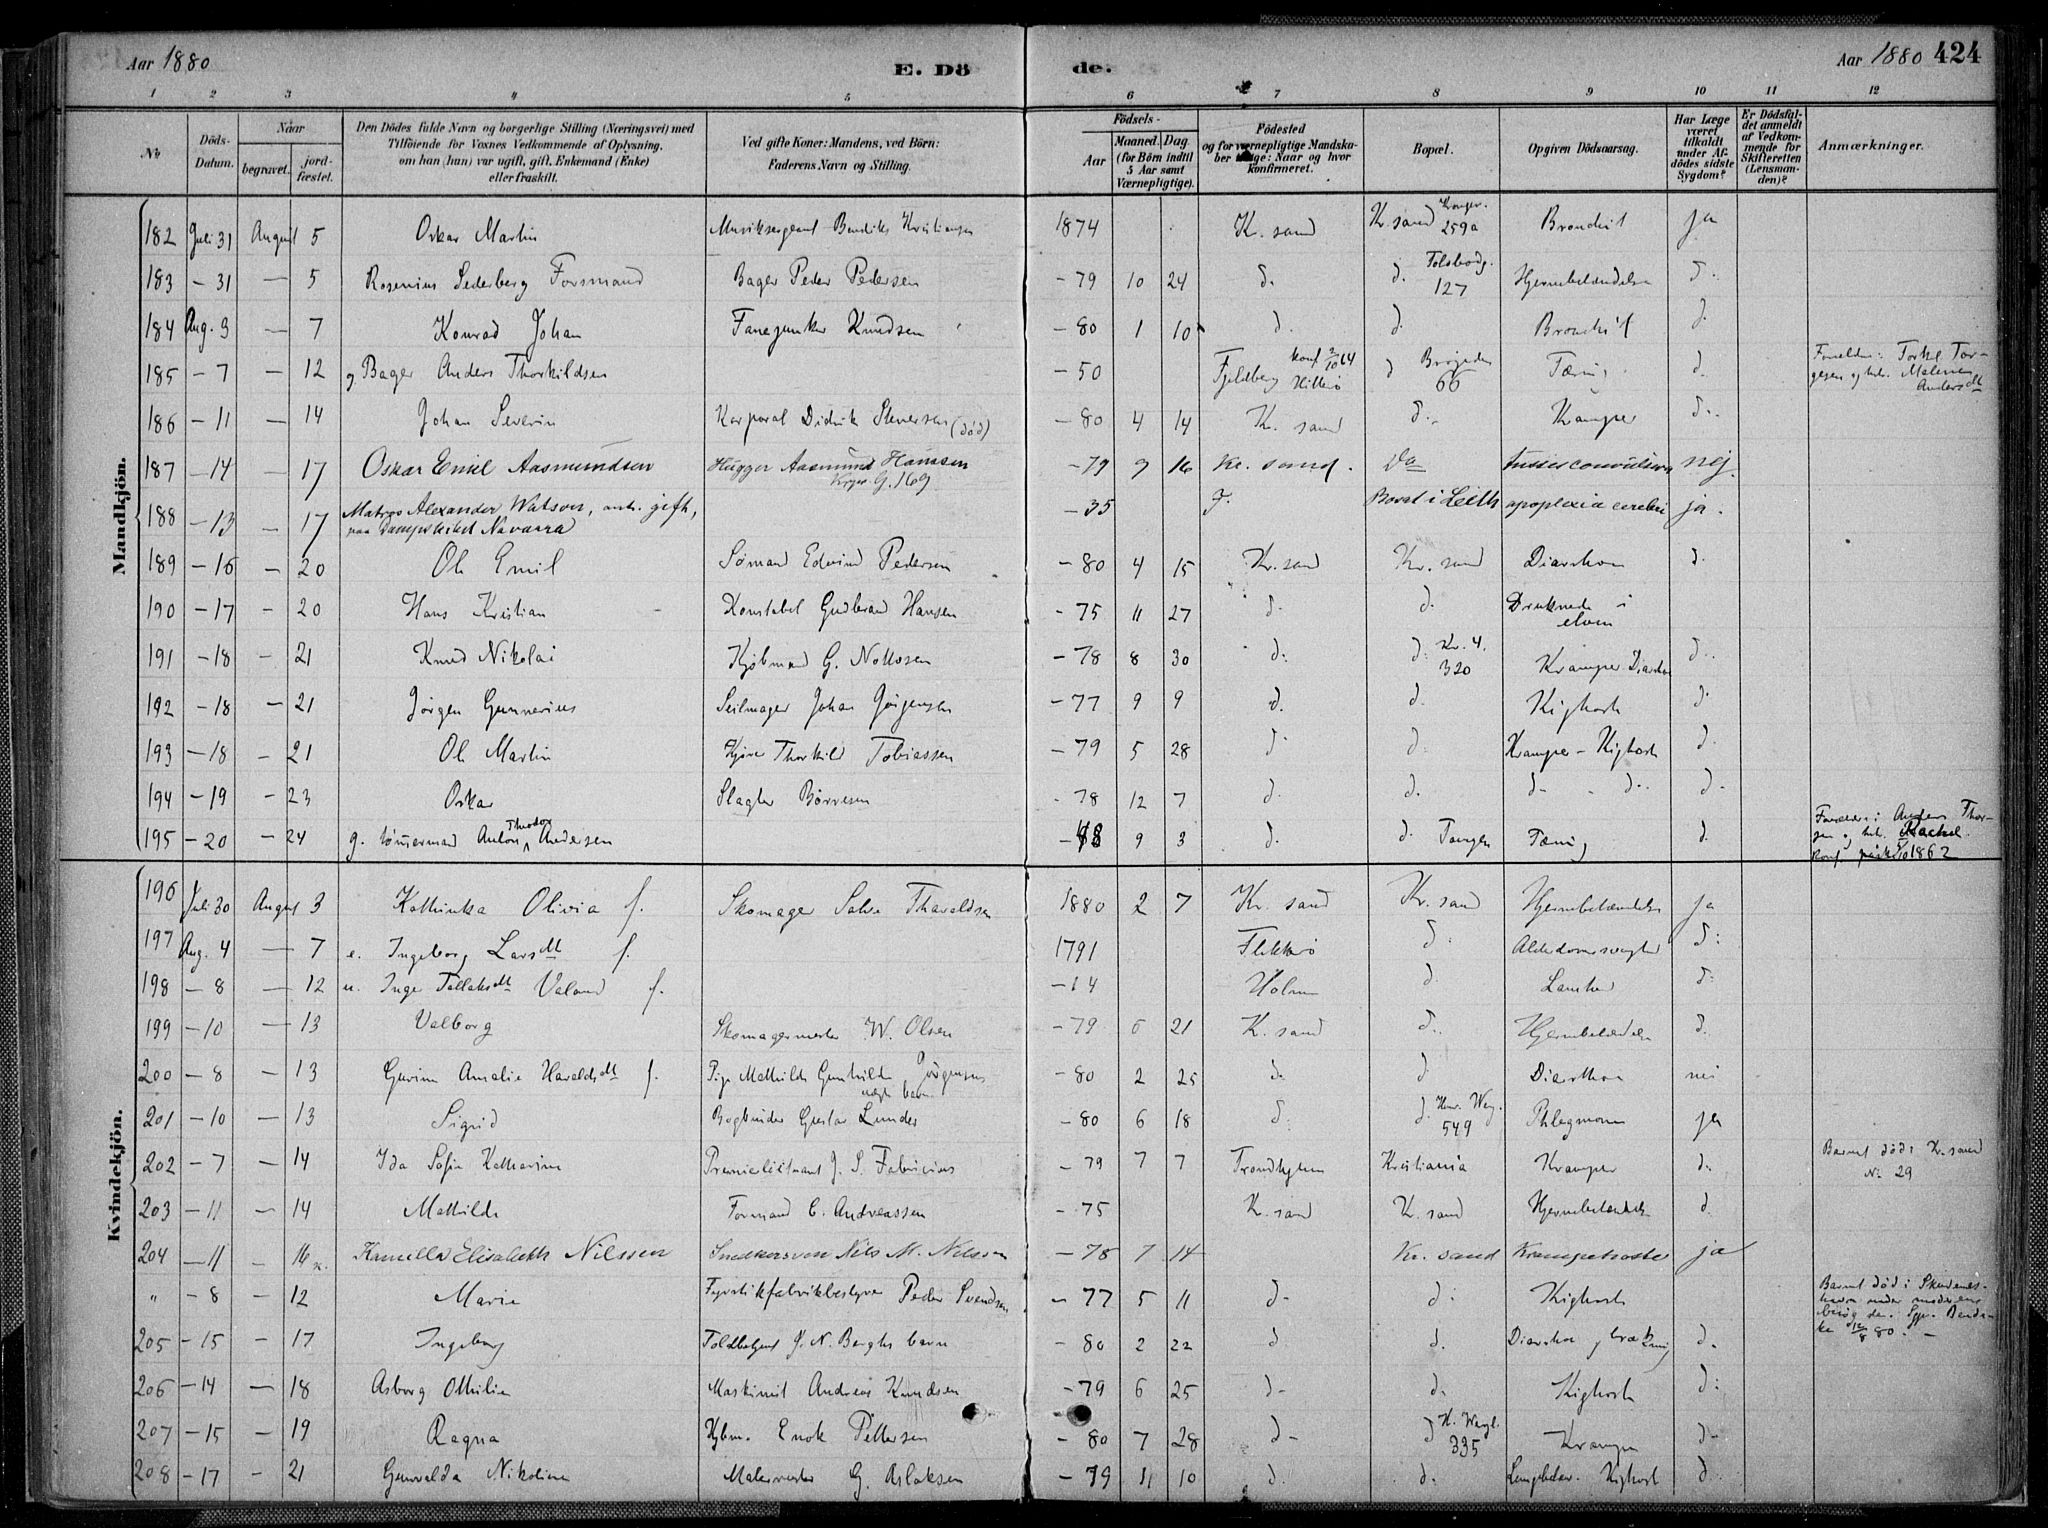 Aar 1880 E. Dö de. Aar 1880 424
1 2 3 4 5 6 7 8 9 10 11 12
No Döds-Datum. Naar begravet. jordfæstet. Den Dödes fulde Navn og borgerlige Stilling (Næringsvei) med Tilföiende for Voxnes Vedkommende af Oplysning, om han (hun) var ugift, gift, Enkemand (Enke) eller fraskilt. Ved gifte Koner: Mandens, ved Börn: Faderens Navn og Stilling. Födsels- Aar Maaned. Dag. (for Börn indtil 5 Aar samt Værnepligtige). Födested og for værnepligtige Mandskaber tillige: Naar og hvor konfirmeret. Bopæl. Opgiven Dödsaarsag. Har Læge været tilkaldt under Afdödes sidste Sygdom? Er Dödsfaldet anmeldt af Vedkommende for Skifteretten (Lensmanden)? Anmærkninger.
Mandkjön.
182 Juli 31 August 5 Oskar Martin Musiksergeant Bendiks Kristiansen 1874 Kr. sand Kr. sand Kronpr. 259a Bronchit ja
183 - 31 — 5 Rosenius Sederberg Forsmand Bager Peder Pedersen - 79 10 24 d. d. Tolbodg. 127 Hjernebetændelse d.
184 Aug. 3 — 7 Konrad Johan Fanejunker Knudsen - 80 1 10 d. d. Bronchit d.
185 - 7 — 12 g Bager Anders Thorkildsen - 50 Fjeldberg konf 2/10 64 Hitterö d 66 Tæring d. Forældre: Torkel Torgesen og hst. Malene Andersdt
186 - 11 — 14 Johan Severin Korporal Didrik Stenersen (död) - 80 4 14 Kr. sand d. Kramper d.
187 - 14 - 17 Oskar Emil Aasmundsen Hugger Aasmund Hansen G. 169 - 79 9 16 Kr. sand. Do tussis convulsiva nej
188 - 13 - 17 Matros Alexander Watson, ant. gift, paa Dampskibet Navarra - 35 Bosat i Leith apoplexia cerebri ja.
189 - 16 - 20 Ole Emil Sömand Edvind Pedersen - 80 4 15 Kr. sand Kr. sand Diarrhoe d.
190 - 17 - 20 Hans Kristian Konstabel Gudbrand Hansen - 75 11 27 d. d. Druknede i elven
191 - 18 - 21 Knud Nikolai Kjöbmand G. - 78 8 30 d. d. Kr. 4. 320 Kramper Diarrhoe d.
192 - 18 - 21 Jörgen Gunnerius Seilmager Johan Jörgensen - 77 9 9 d. d. Kighoste d.
193 - 18 - 21 Ole Martin Thorkild Tobiassen - 79 5 28 d. d. Kramper - Kighoste d.
194 - 19 - 23 Oskar Slagter Börresen - 78 12 7 d. d. d- - d. d.
195 - 20 - 24 g. tömmermand Anton Theodor Andersen - 48 9 3 d. d. Tangen Tæring d. Forældre: Anders og hst. Rachel. Konf. 1862
Kvindekjön.
196 Juli 30 August 3 Kathinka Olivia f. Skomager Salve Tharaldsen 1880 2 7 Kr. sand Kr. sand Hjernebetændelse ja
197 Aug. 4 — 7 e. Ingeborg Larsdt f. 1791 Flekkerö d. Alderdomssvaghed d.
198 - 8 — 12 u. Inge Tellaksdt Valand f. - 14 Holum d. d.
199 - 10 — 13 Valborg Skomagermester W. Olsen - 79 6 21 K. sand d. Hjernebetændelse d.
200 - 8 — 13 Amalie Haraldsdt f. Pige Mathilde Gunhilde Jörgensens uægte barn - 80 2 25 d. d. Diarrhoe nei
201 - 10 — 13 Sigrid Bogbinder Gustav Lunde - 80 6 18 d. d. 549 Phlegmone ja
202 - 7 — 14 Ida Sofie Katharine Premierlöitnant J. S. Fabricius - 79 7 7 Trondhjem Kristiania Kramper d. Barnet död i Kr. sand No. 29
203 - 11 — 14 Mathilde Formand C. Andreassen - 75 K. sand K. sand Hjernebetændelse d.
204 - 11 - 16 Kamilla Elisabeth Nilssen Snedkersven Nils M. Nilssen - 78 7 14 Kr. sand Krampehoste ja
" - 8 - 12 Marie Fyrstikfabrikbestyrer Peder Svendsen - 77 5 11 d- d. Kighoste Barnet död i Skudeneshavn under moderens besög der. 12/8 80. -
205 - 15 - 17 Ingeborg Toldbetjent J. N. Berghs barn - 80 2 22 d d. Diarrhoe og brækning d.
206 - 14 — 18 Asborg Othilie Maskinist Andreas Knudsen - 79 6 25 d- d. Kighoste d.
207 - 15 — 19 Ragna Kjbm. Enok Pettersen - 80 7 28 d- d 335 Kramper d-
208 - 17 - 21 Gunvalda Nikoline Malermester G. Aslaksen - 79 11 10 d. d. Kighoste d.